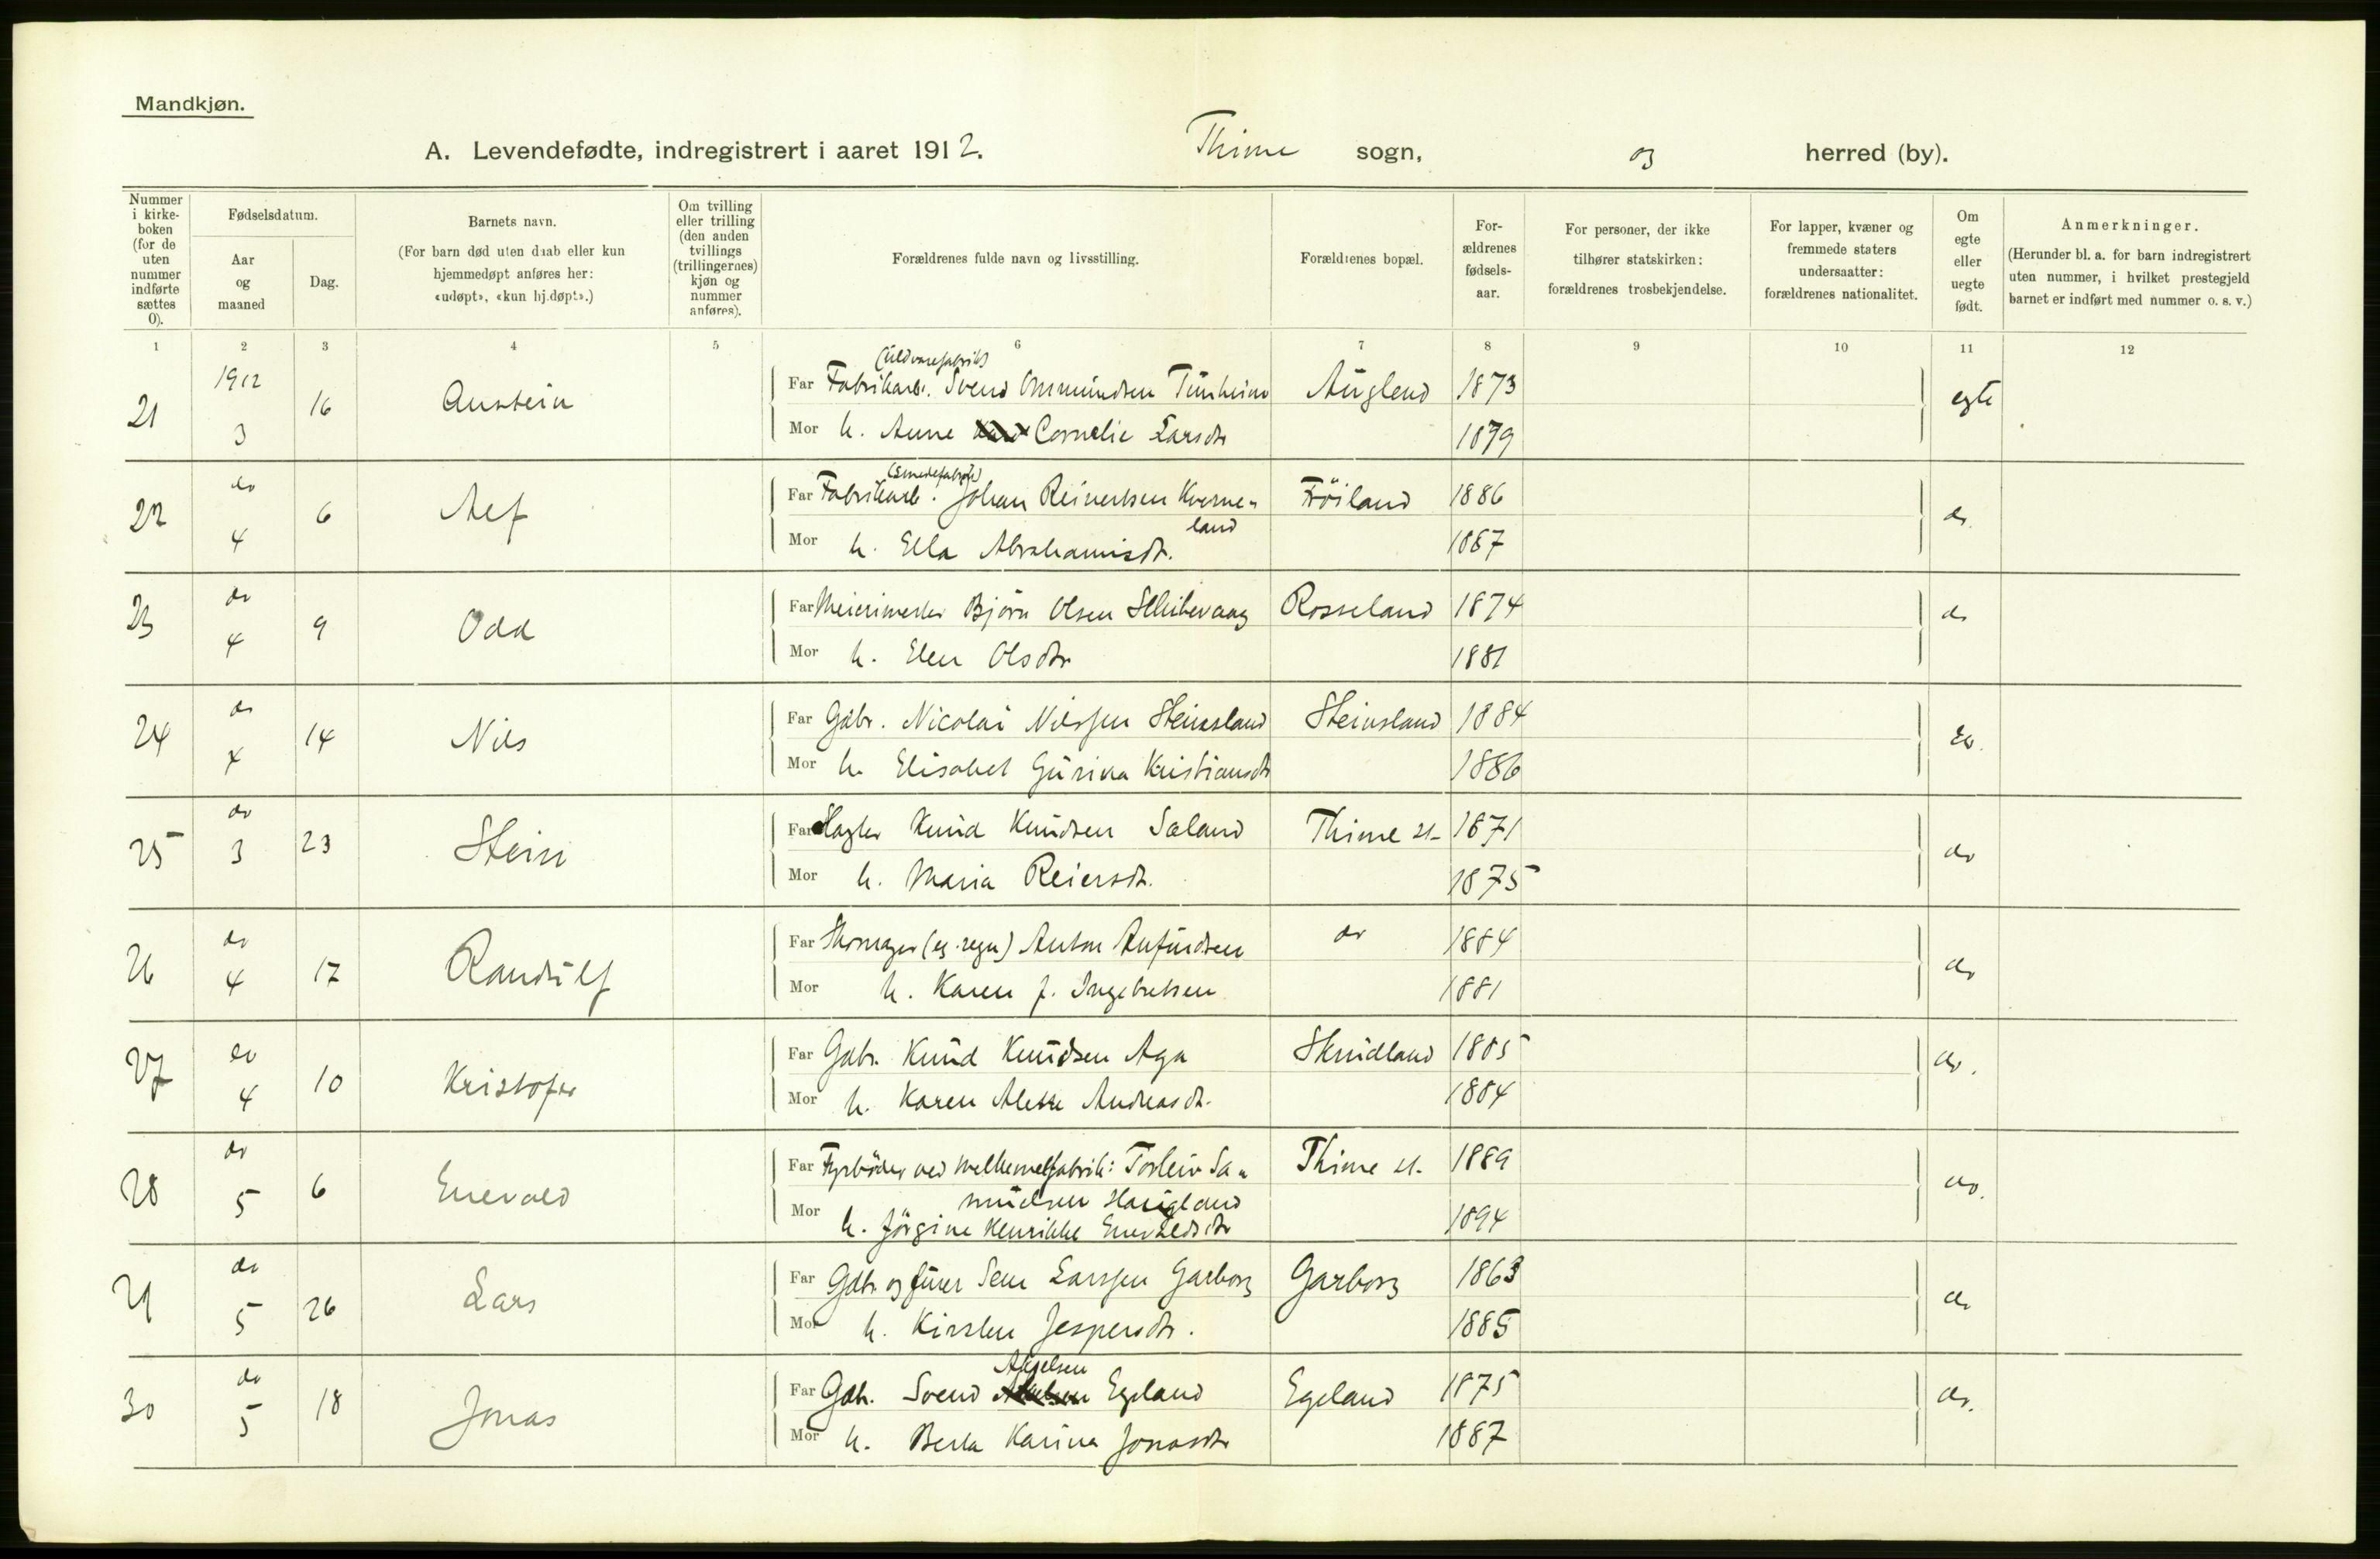 Mandkjøn.
A. Levendefødte, indregistrert i aaret 1912. Thime sogn, og herred (by).
Nummer i kirkeboken (for de uten nummer indførte sættes 0).
Fødselsdatum.
Aar og maaned
Dag.
Barnets navn.
(For barn død uten daab eller kun hjemmedøpt anføres her: «udøpt», «kun hj.døpt».)
Om tvilling eller trilling (den anden tvillings (trillingernes) kjøn og nummer anføres).
Forældrenes fulde navn og livsstilling.
Forældrenes bopæl.
Forældrenes fødselsaar.
For personer, der ikke tilhører statskirken: forældrenes trosbekjendelse.
For lapper, kvæner og fremmede staters undersaatter: forældrenes nationalitet.
Om egte eller uegte født.
Anmerkninger.
(Herunder bl. a. for barn indregistrert uten nummer, i hvilket prestegjeld barnet er indført med nummer o. s. v.)
1 2 3 4 5 6 7 8 9 10 11 12
(Uldvarefabrik)
21 1912 3 16 Austein Far Fabrikarb. Svend Ommundsen Tunheim Auglend 1873 egte
Mor h. Anne Cornelie Larsdtr 1879
(Smedefabrik)
22 do 4 6 Alf Far Fabrikarb. Johan Reinertsen Kverne- Fröiland 1886 do
land
Mor h. Ella Abrahamsdtr. 1887
23 do 4 9 Odd Far Meierimester Björn Olsen Rosseland 1874 do
Mor h. Elen Olsdtr 1881
24 do 4 14 Nils Far Gdbr. Nicolai Nilssen Steinsland Steinsland 1884 do.
Mor h. Elisabet Gurina Kristiansdtr 1886
25 do 3 23 Stein Far Slagter Knud Knudsen Sæland Thime st. 1871 do
Mor h. Maria Reiersdtr. 1875
26 do 4 17 Randulf Far Skomager (eg. regn) Anton Anfindsen do 1884 do
Mor h. Karen f. Ingebretsen 1881
27 do 4 10 Kristofer Far Gdbr. Knud Knudsen Aga Skrudland 1885 do.
Mor h. Karen Andreasdtr. 1884
28 do 5 6 Enevald Far Fyrbøder ved melkemelfabrik: Torleiv Sa- Thime st. 1889 do.
muelsen Haugland
Mor h. Jörgine Henrikke Enevaldsdtr 1894
29 do 5 26 Lars Far Gdbr og Larssen Garborg Garborg 1863 do
Mor h. Kirsten Jespersdtr. 1885
Akselsen
30 do 5 18 Jonas Far Gdb. Svend Egeland Egeland 1875 do.
Mor h. Berta Karina Jonasdtr 1887